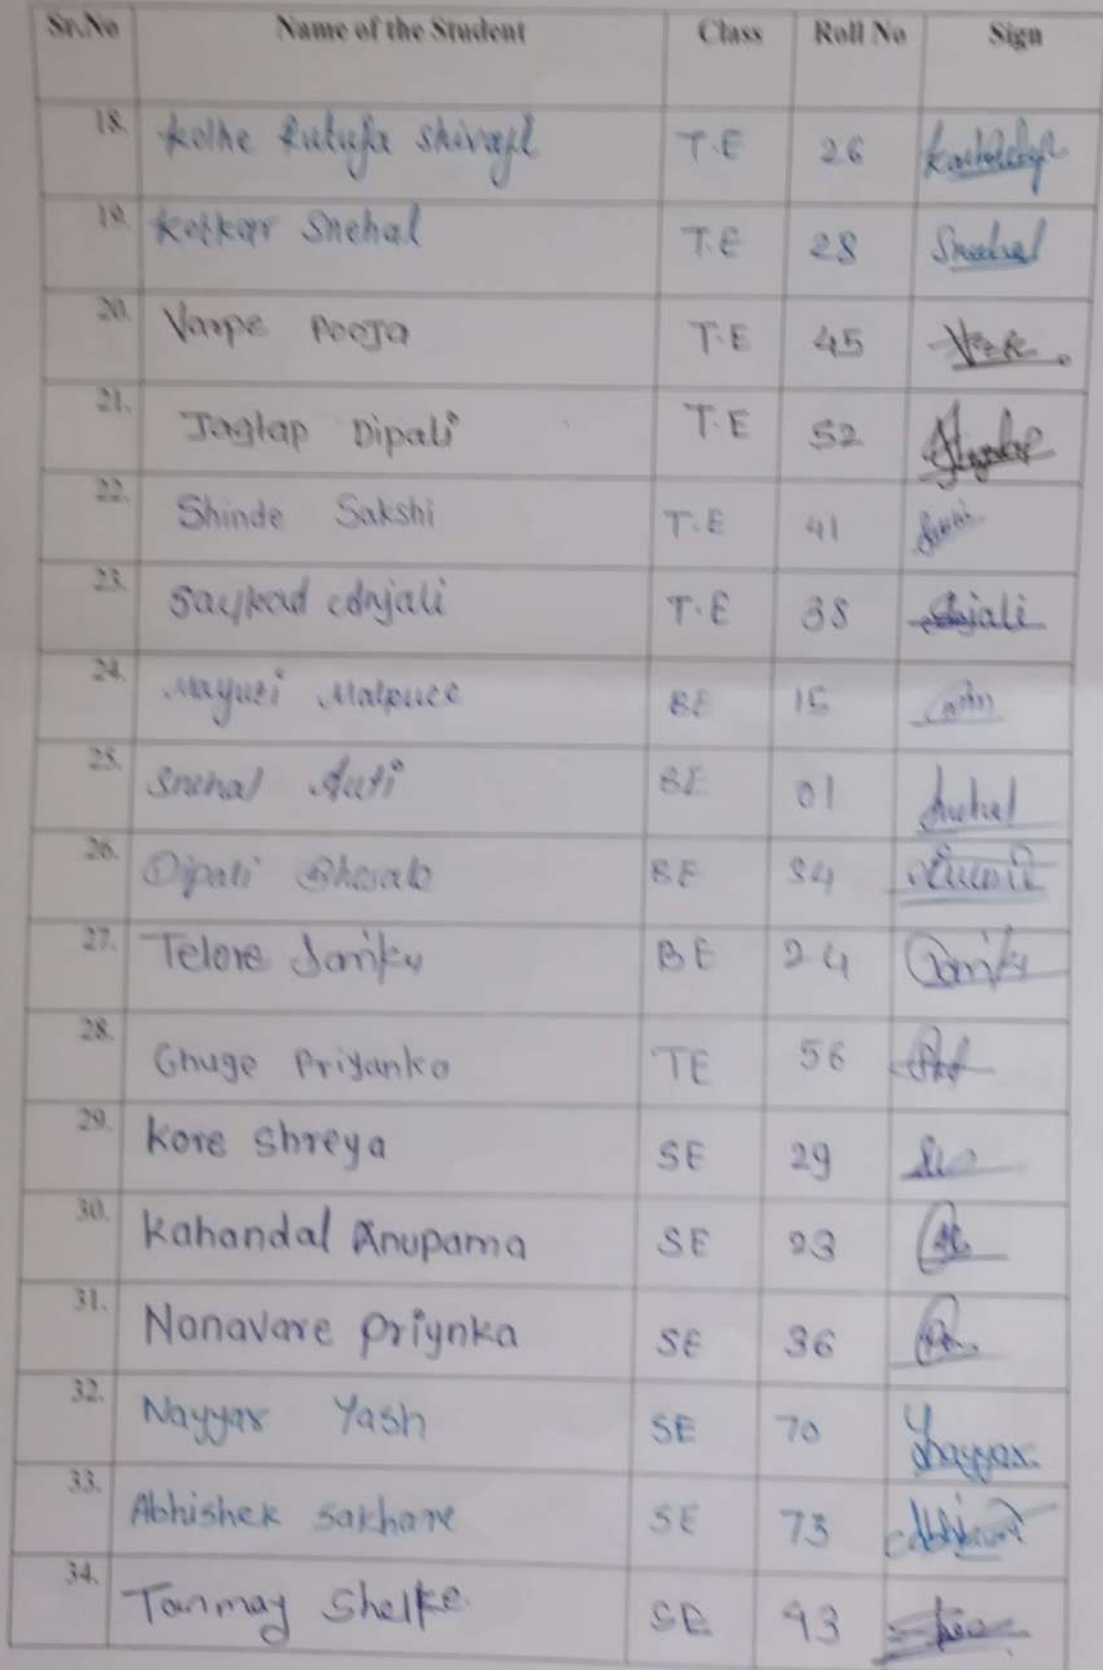 Sr.No Name of the Student Class Roll No Sign
18. Kolhe Rutuja Shivaji T.E 26
19. Kotkar Snehal T.E 28 Snehal
20. Varpe Pooja T.E 45
21. Jagtap Dipali T.E 52
22. Shinde Sakshi T.E 41
23. Saykad Anjali T.E 38 Anjali
24. Mayuri Malpure BE 15
25. Snehal Auti BE 01 Snehal
26. Dipali Bhosale BE 34
27. Telore Janku BE 24
28. Ghuge Priyanka TE 56
29. Kore Shreya SE 29
30. Kahandal Anupama SE 23
31. Nanavare Priynka SE 36
32. Nayyar Yash SE 70
33. Abhishek Sakhare SE 73
34. Tanmay Shelke SE 43